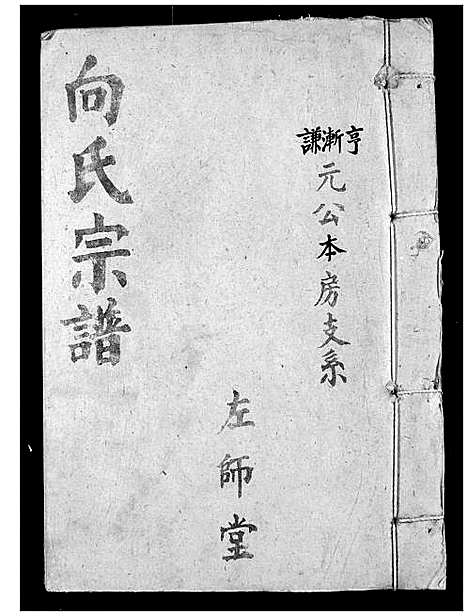 亨漸謙
元公本房支系
左師堂
向氏宗譜